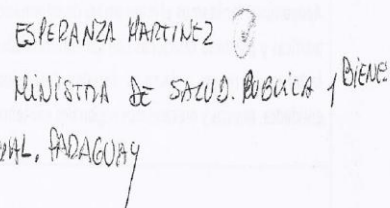 ESPERANZA MARTINEZ
MINISTRA DE SALUD. PUBLICA Y BIENES
IAL. PARAGUAY